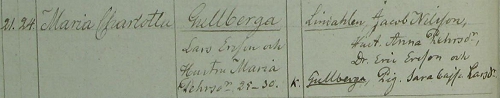 21. 24. Maria Charlotta
Gullberga
Lars Ersson och
Hustru Maria
Pehrsdr. 25-30.
Jacob Nilsson,
Hust. Anna Pehrsdr,
Dr. Eric Ersson och
k. Gullberga, Pig. Sara Cajsa Larsdr